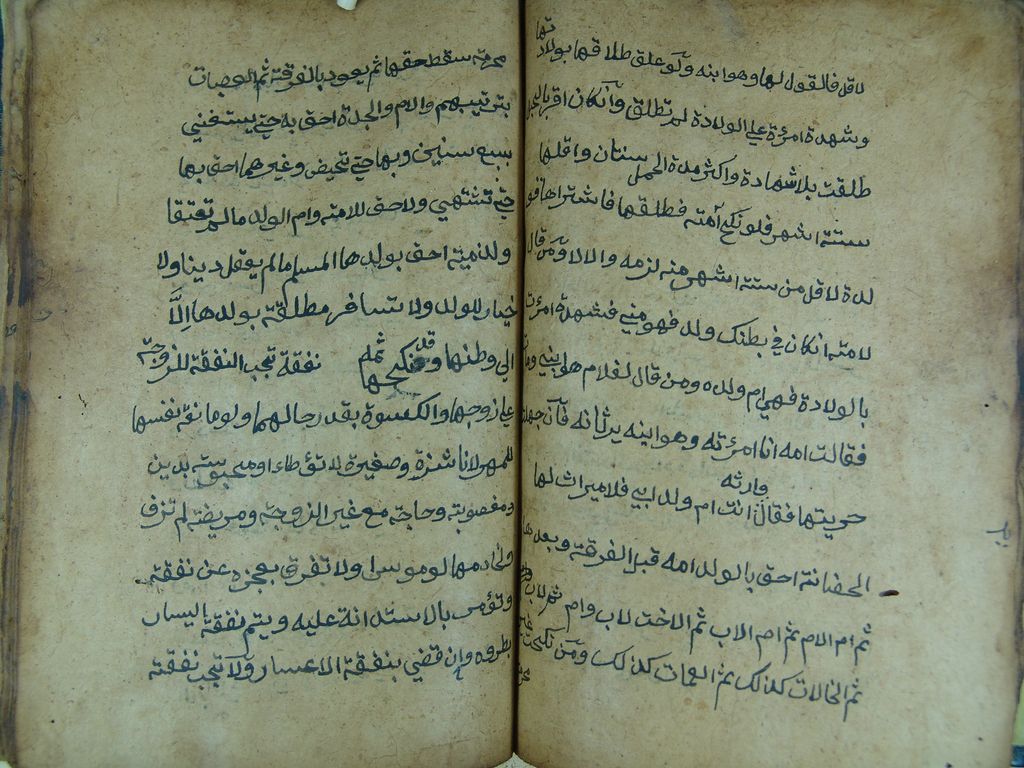 لاقل فالقول لها وهو ابنه ولو علق طلاقها بولادتها
وشهدة امرئة علي الولادة لم تطلق وان كان اقر بالحبل
طلقت بلا شهادة واكثر مدة الحمل سنتان واقلها
ستة اشهر فلو نكح امته فطلقها فاشتراها فو
لدة لاقل من ستة اشهر منه لزمه والا لا ومن قال
لامته ان كان في بطنك ولد فهو مني فشهدة امرئة
بالولادة فهي ام ولده ومن قال لغلام هو ابني ومات
فقالت امه انا امرئته وهو ابنه يرثانه فان جهلة
حريتها فقال وارثه انت ام ولد ابي فلا ميراث لها
الحضانة احق بالولد امه قبل الفرقة وبعدها
ثم ام الام ثم ام الاب ثم الاخت لاب وام ثم لام ثم لاب
ثم الخالات كذلك ثم العمات كذلك ومن نكحت غير
محرمه سقط حقها ثم يعود بالفرقة ثم العصبات
بترتيبهم والام والجدة احق به حتي يستغني
بسبع سنين وبها حتي تحيض وغيرهما احق بها
حتي تشتهي ولا حق للامة وام الولد ما لم تعتقا
والذمية احق بولدها المسلم ما لم يعقل دينا ولا
خيار للولد ولا تسافر مطلقة بولدها الا
الي وطنها وقد نكحها ثم نفقة تجب النفقة للزوجة
علي زوجها والكسوة بقدر حالهما ولو مانعة نفسها
للمهر لا ناشزة وصغيرة لا توطاء ومحبوسة بدين
ومغصوبة وحاجة مع غير الزوج ومريضة لم تزف
ولخادمها لو موسرا ولا تفرق بعجزه عن نفقة
وتؤمر بالاستدانة عليه ويتم نفقة اليسار
بطروه وان قضي بنفقة الاعسار ولا تجب نفقة